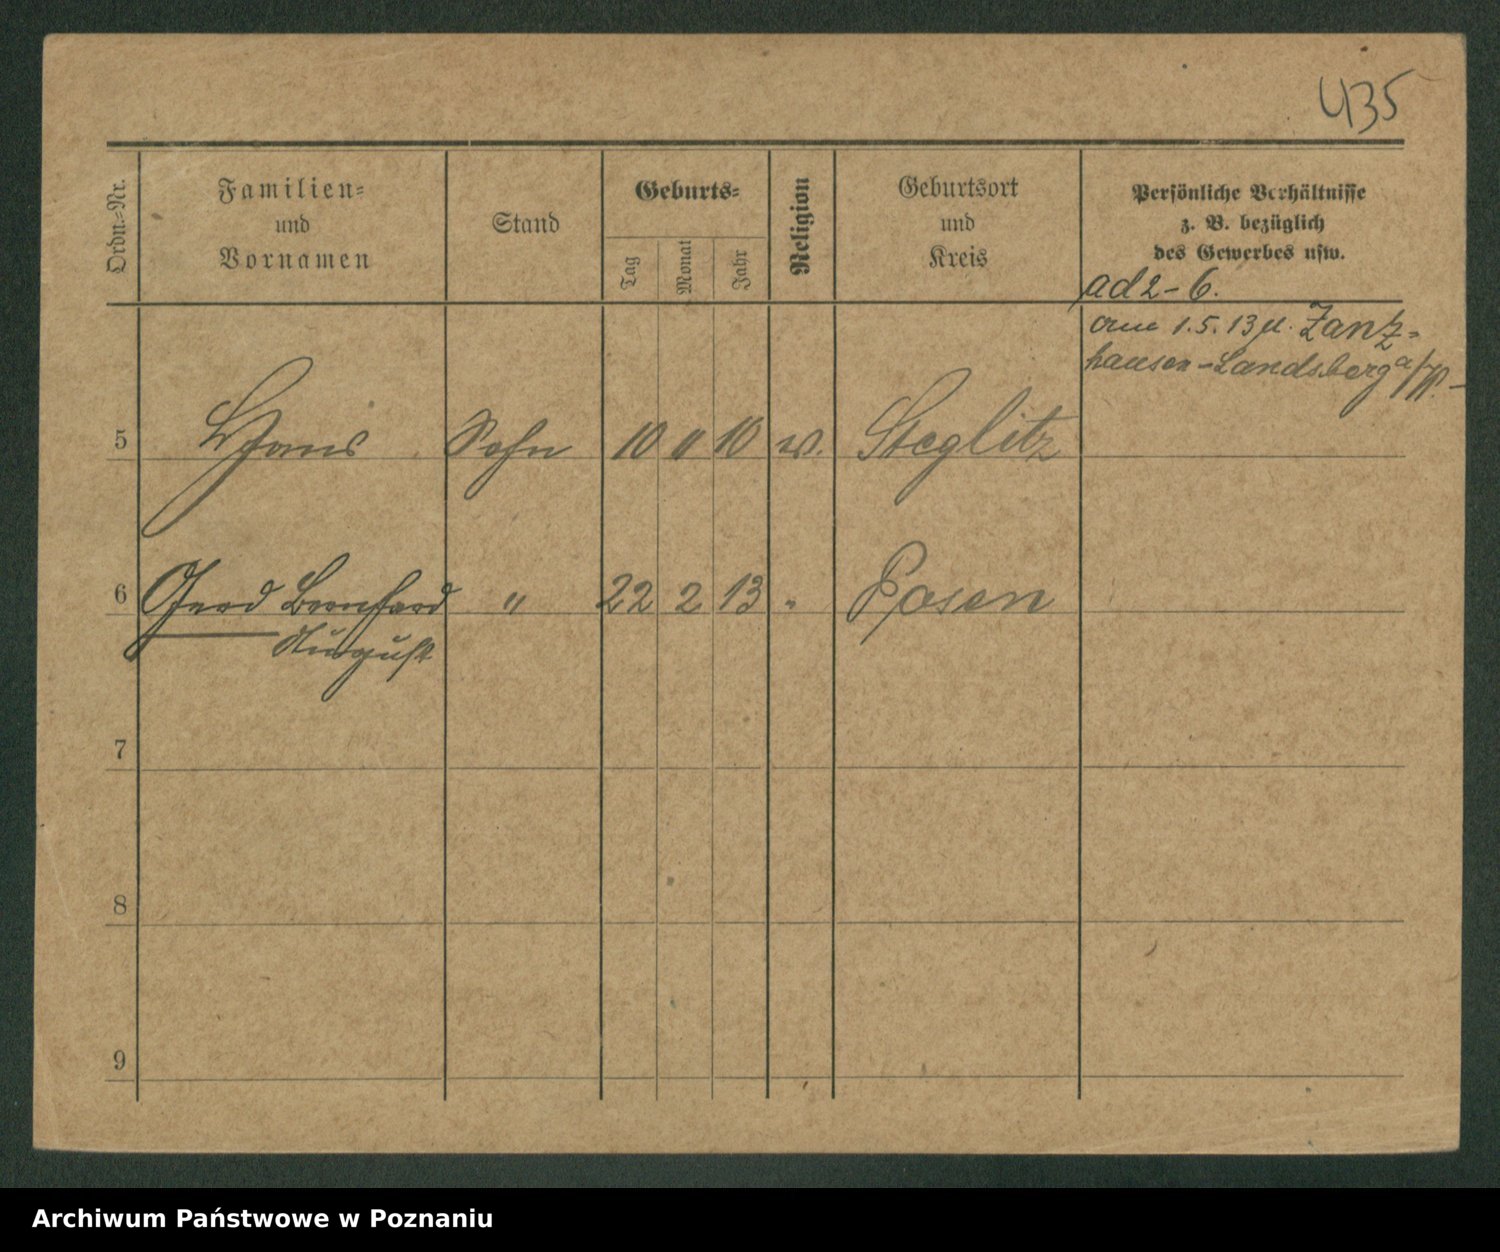 435
Ordn.-Nr.
Familien-
und
Vornamen
Stand
Geburts-
Tag
Monat
Jahr
Religion
Geburtsort
und
Kreis
Persönliche Verhältnisse
z. B. bezüglich
des Gewerbes usw.
ad 2-6.
am 1.5.13 n. Zanz-
hausen-Landsberg a/W.
5 Hans Sohn 10 11 10 Steglitz
6 Gerd Bernhard " 22 2 13 " Posen
August
7
8
9
Archiwum Państwowe w Poznaniu